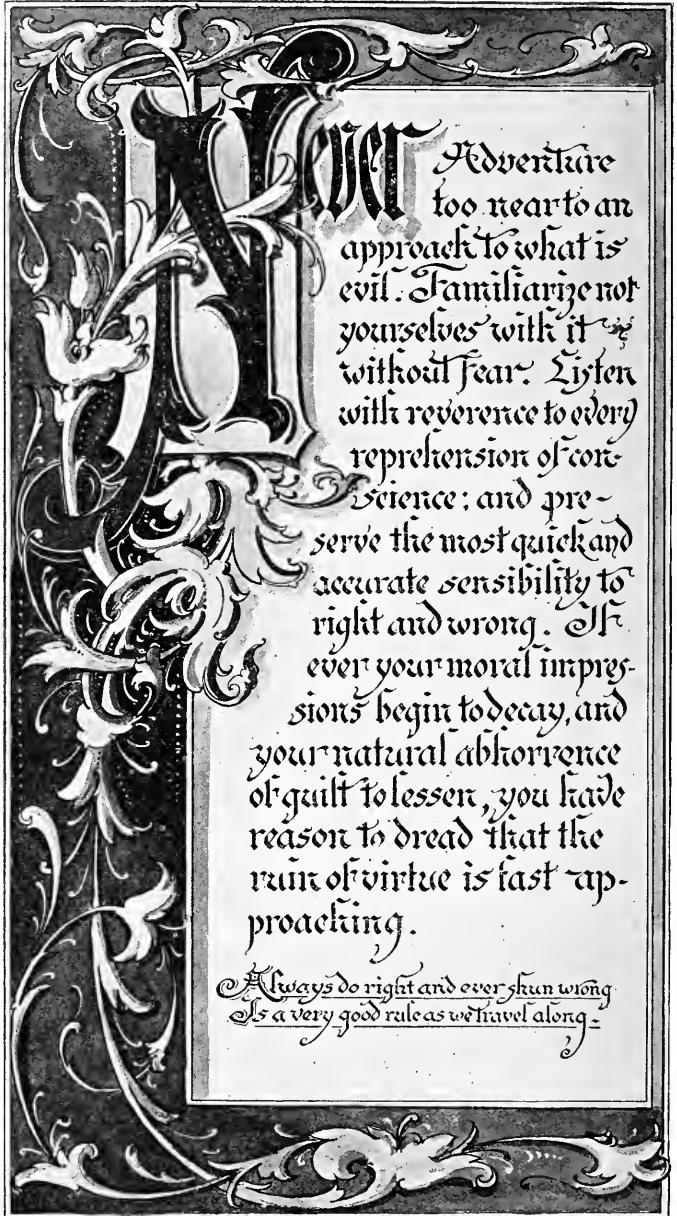 Never Adventure
too near to an
approach to what is
evil. Familiarize not
yourselves with it
without fear. Listen
with reverence to every
reprehension of con-
science; and pre-
serve the most quick and
accurate sensibility to
right and wrong. If
ever your moral impres-
sions begin to decay, and
your natural abhorrence
of guilt to lessen, you have
reason to dread that the
ruin of virtue is fast ap-
proaching.
Always do right and ever shun wrong
Is a very good rule as we travel along.